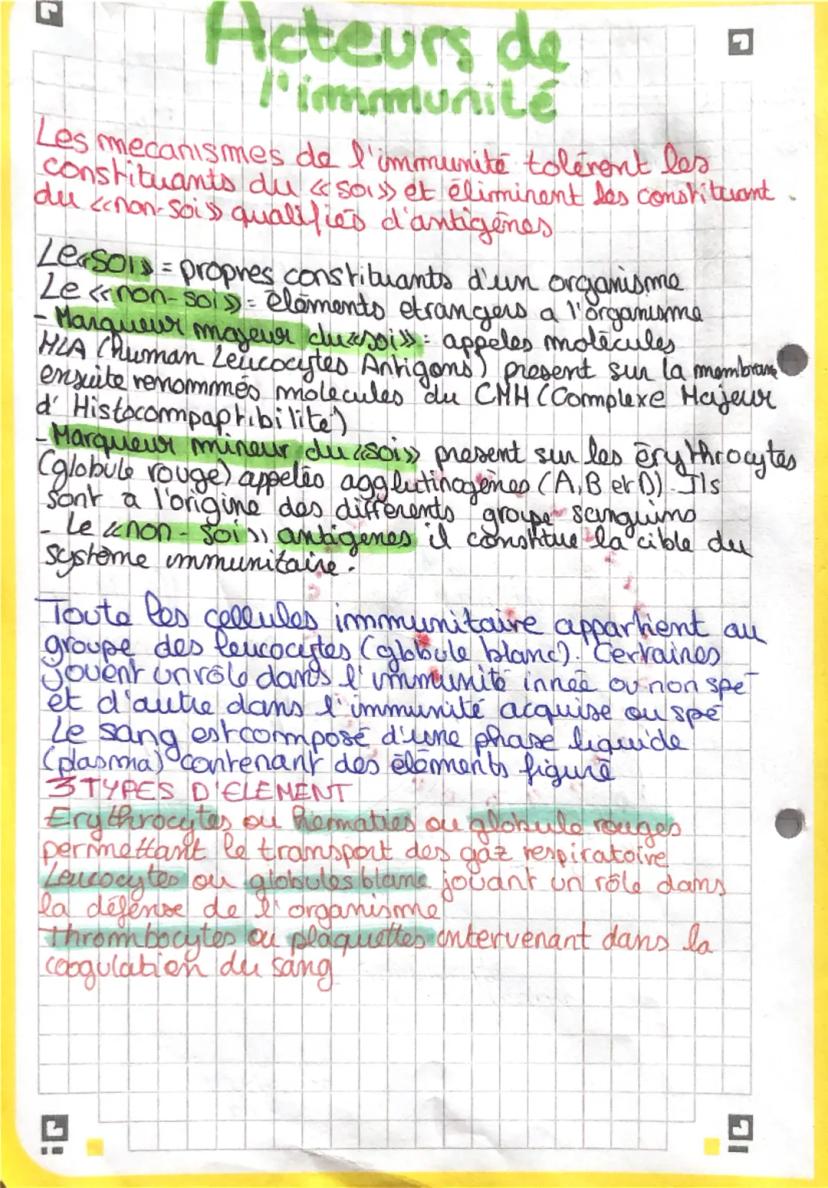 Acteurs de
l'immunité
Les mecanismes de l'immunité tolèrent les
constituants du «soi» et éliminent les constituant
du «non-soi» qualifiés d'antigènes
Le «SOI» = propres constituants d'un organisme
Le «non-soi» = éléments etrangers a l'organisme
- Marqueur majeur du «soi» = appelés molécules
HLA (human Leucocytes Antigens) present sur la membrane
ensuite renommés molécules du CMH (Complexe Majeur
d'Histocompaptibilité)
- Marqueur mineur du «soi» present sur les érythrocytes
(globule rouge) appelés agglutinogènes (A, B et D). Ils
sont a l'origine des différents groupe sanguins
- Le «non-soi» antigènes il constitue la cible du
système immunitaire.
Toute les cellules immunitaire appartient au
groupe des leucocytes (globule blanc). Certaines
jouent un rôle dans l'immunité innée ou non spé
et d'autre dans l'immunité acquise ou spé
Le sang est composé d'une phase liquide
(plasma) contenant des éléments figuré
3 TYPES D'ELEMENT
Erythrocytes ou hematies ou globule rouges
permettant le transport des gaz respiratoire
Leucocytes ou globules blanc jouant un rôle dans
la défense de l'organisme
thrombocytes ou plaquettes intervenant dans la
coagulation du sang